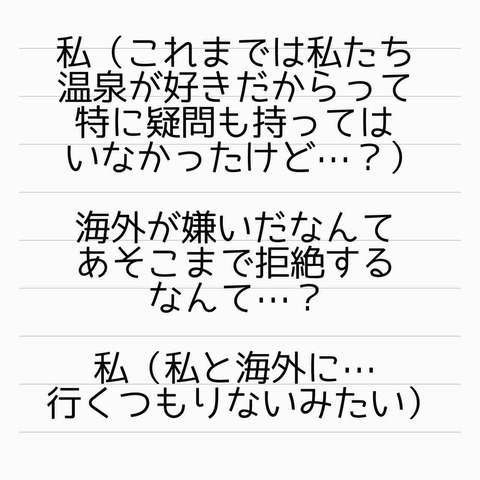 私（これまでは私たち
温泉が好きだからって
特に疑問も持っては
いなかったけど…？）
海外が嫌いだなんて
あそこまで拒絶する
なんて…？
私（私と海外に…
行くつもりないみたい）